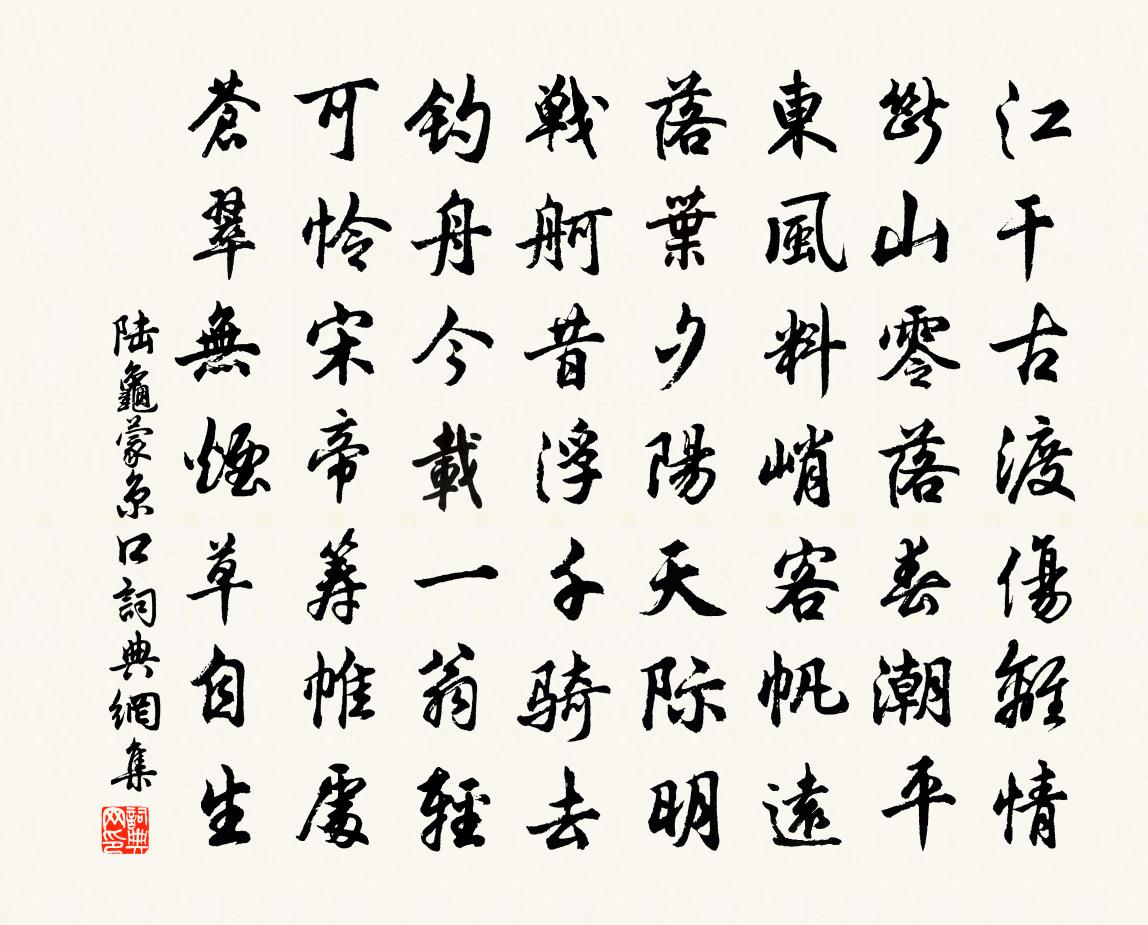 江干古渡傷離情
斷山零落春潮平
東風料峭客帆遠
落葉夕陽天際明
戰舸昔浮千騎去
釣舟今載一翁輕
可憐宋帝籌帷處
蒼翠無煙草自生
陸龜蒙京口詞典網集
詞典網印